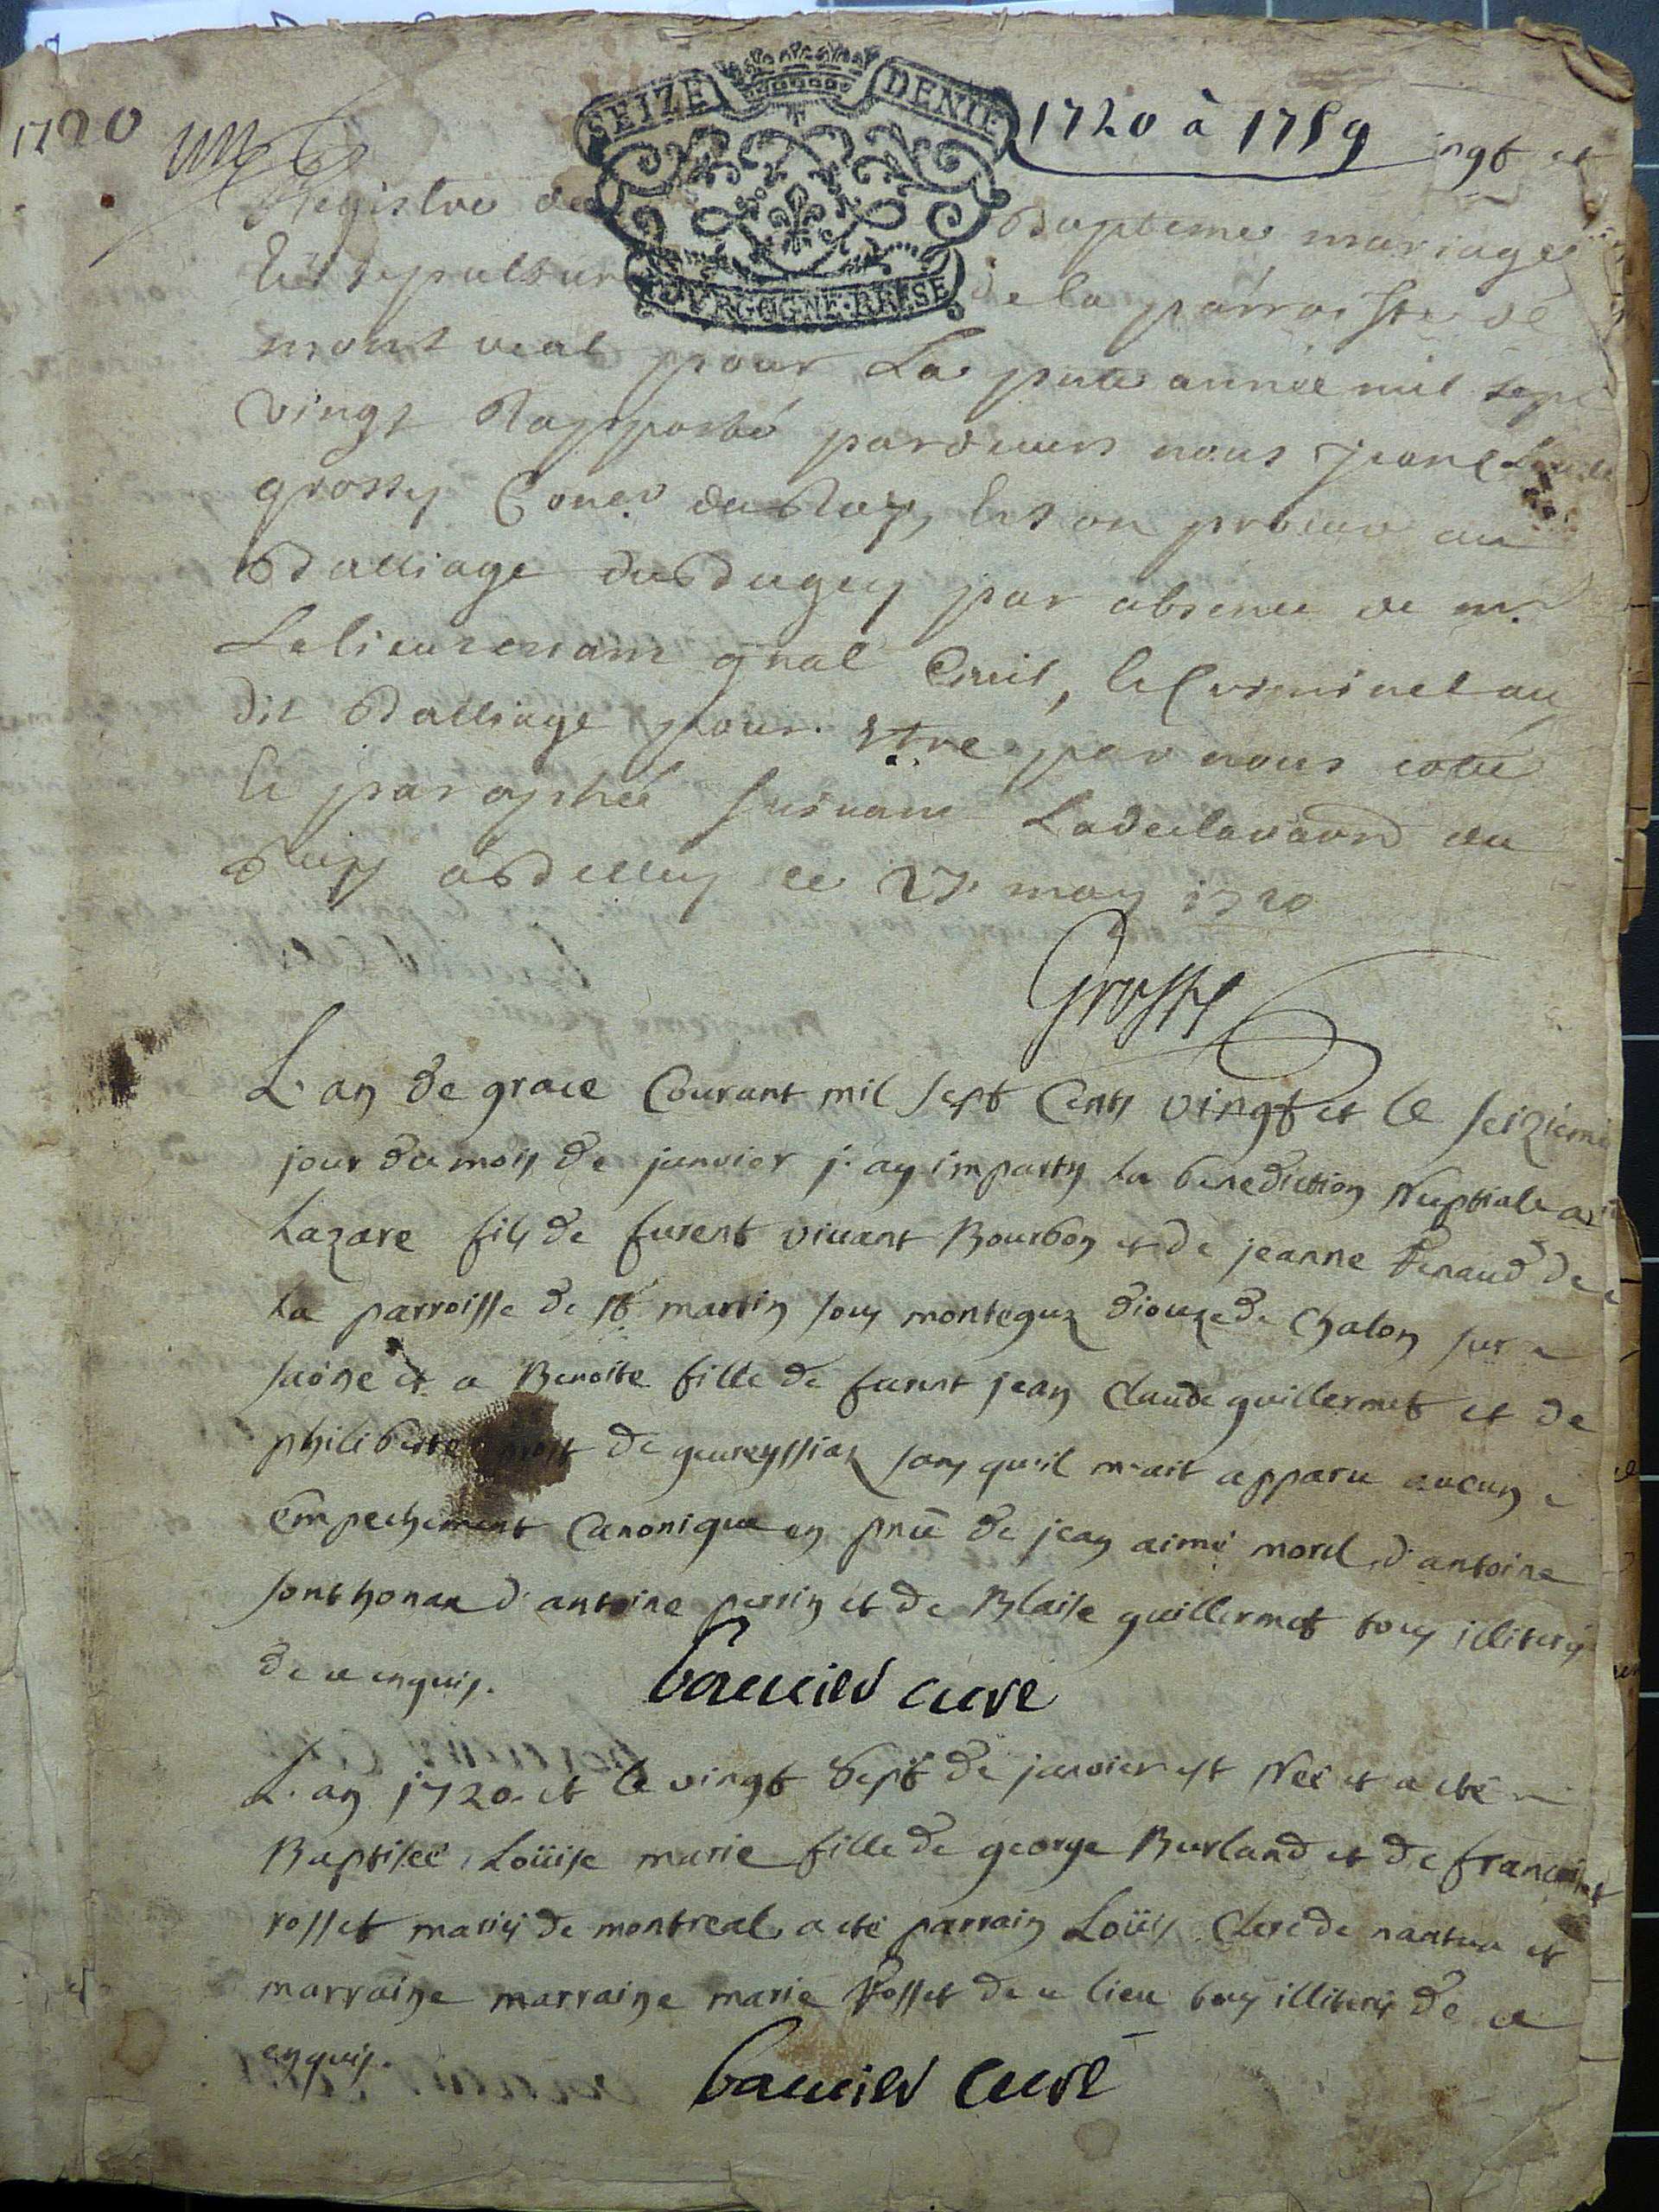 1720
SEIZE DENIE
1720 à 1759
ingt et
une
Registre de Bapteme mariages
Et sepultur de la parroisse de
montreal pour La pnte année mil sept
vingt Rapporté pardevers nous Jean Claude
grossy Coner du Roy, Et son procur au
Balliage du Bugey par absence de mr
Lelieutenant gnal Civil, Et Criminel au
dit Balliage pour Etre par nous cotté
Et paraphé suivant Ladeclaraon du
Roy a Belley le 27 may 1720
BOURGOGNE·BRESSE
Grossy
L'an de grace Courant mil sept Cents vingt et le seizieme
jour du mois de janvier j'ay imparty la benediction Nuptiale a
Lazare fils de furent vivant Bourbon et de jeanne Renaud de
la parroisse de st martin sous monteguz diouze de Chalon sur
saóne et a Benoite fille de furent jean Claude guillermet et de
philiberte de geureyssiaz sans qu'il m'ait apparu aucun
Empechement Canonique en pnce de jean aimé morel d'antoine
sonthonax d'antoine perrin et de Blaise guillermet tous illiterés
de ce enquis. curé
L'an 1720 et le vingt Sept de janvier est Née et a eté
Baptisée Loüise marie fille de george Burland et de francoise
rosset mariés de montreal a eté parrain Loüis Clerc de nantua et
marraine marraine marie Rosset de ce lieu tous illiterés de ce
enquis. curé